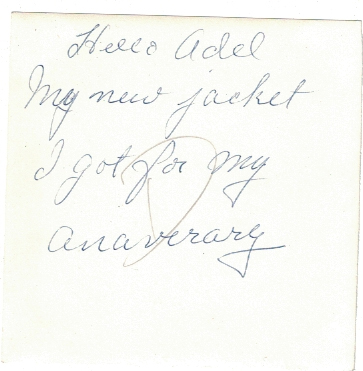 Hello Adel
My new jacket
I got for my
anaverary